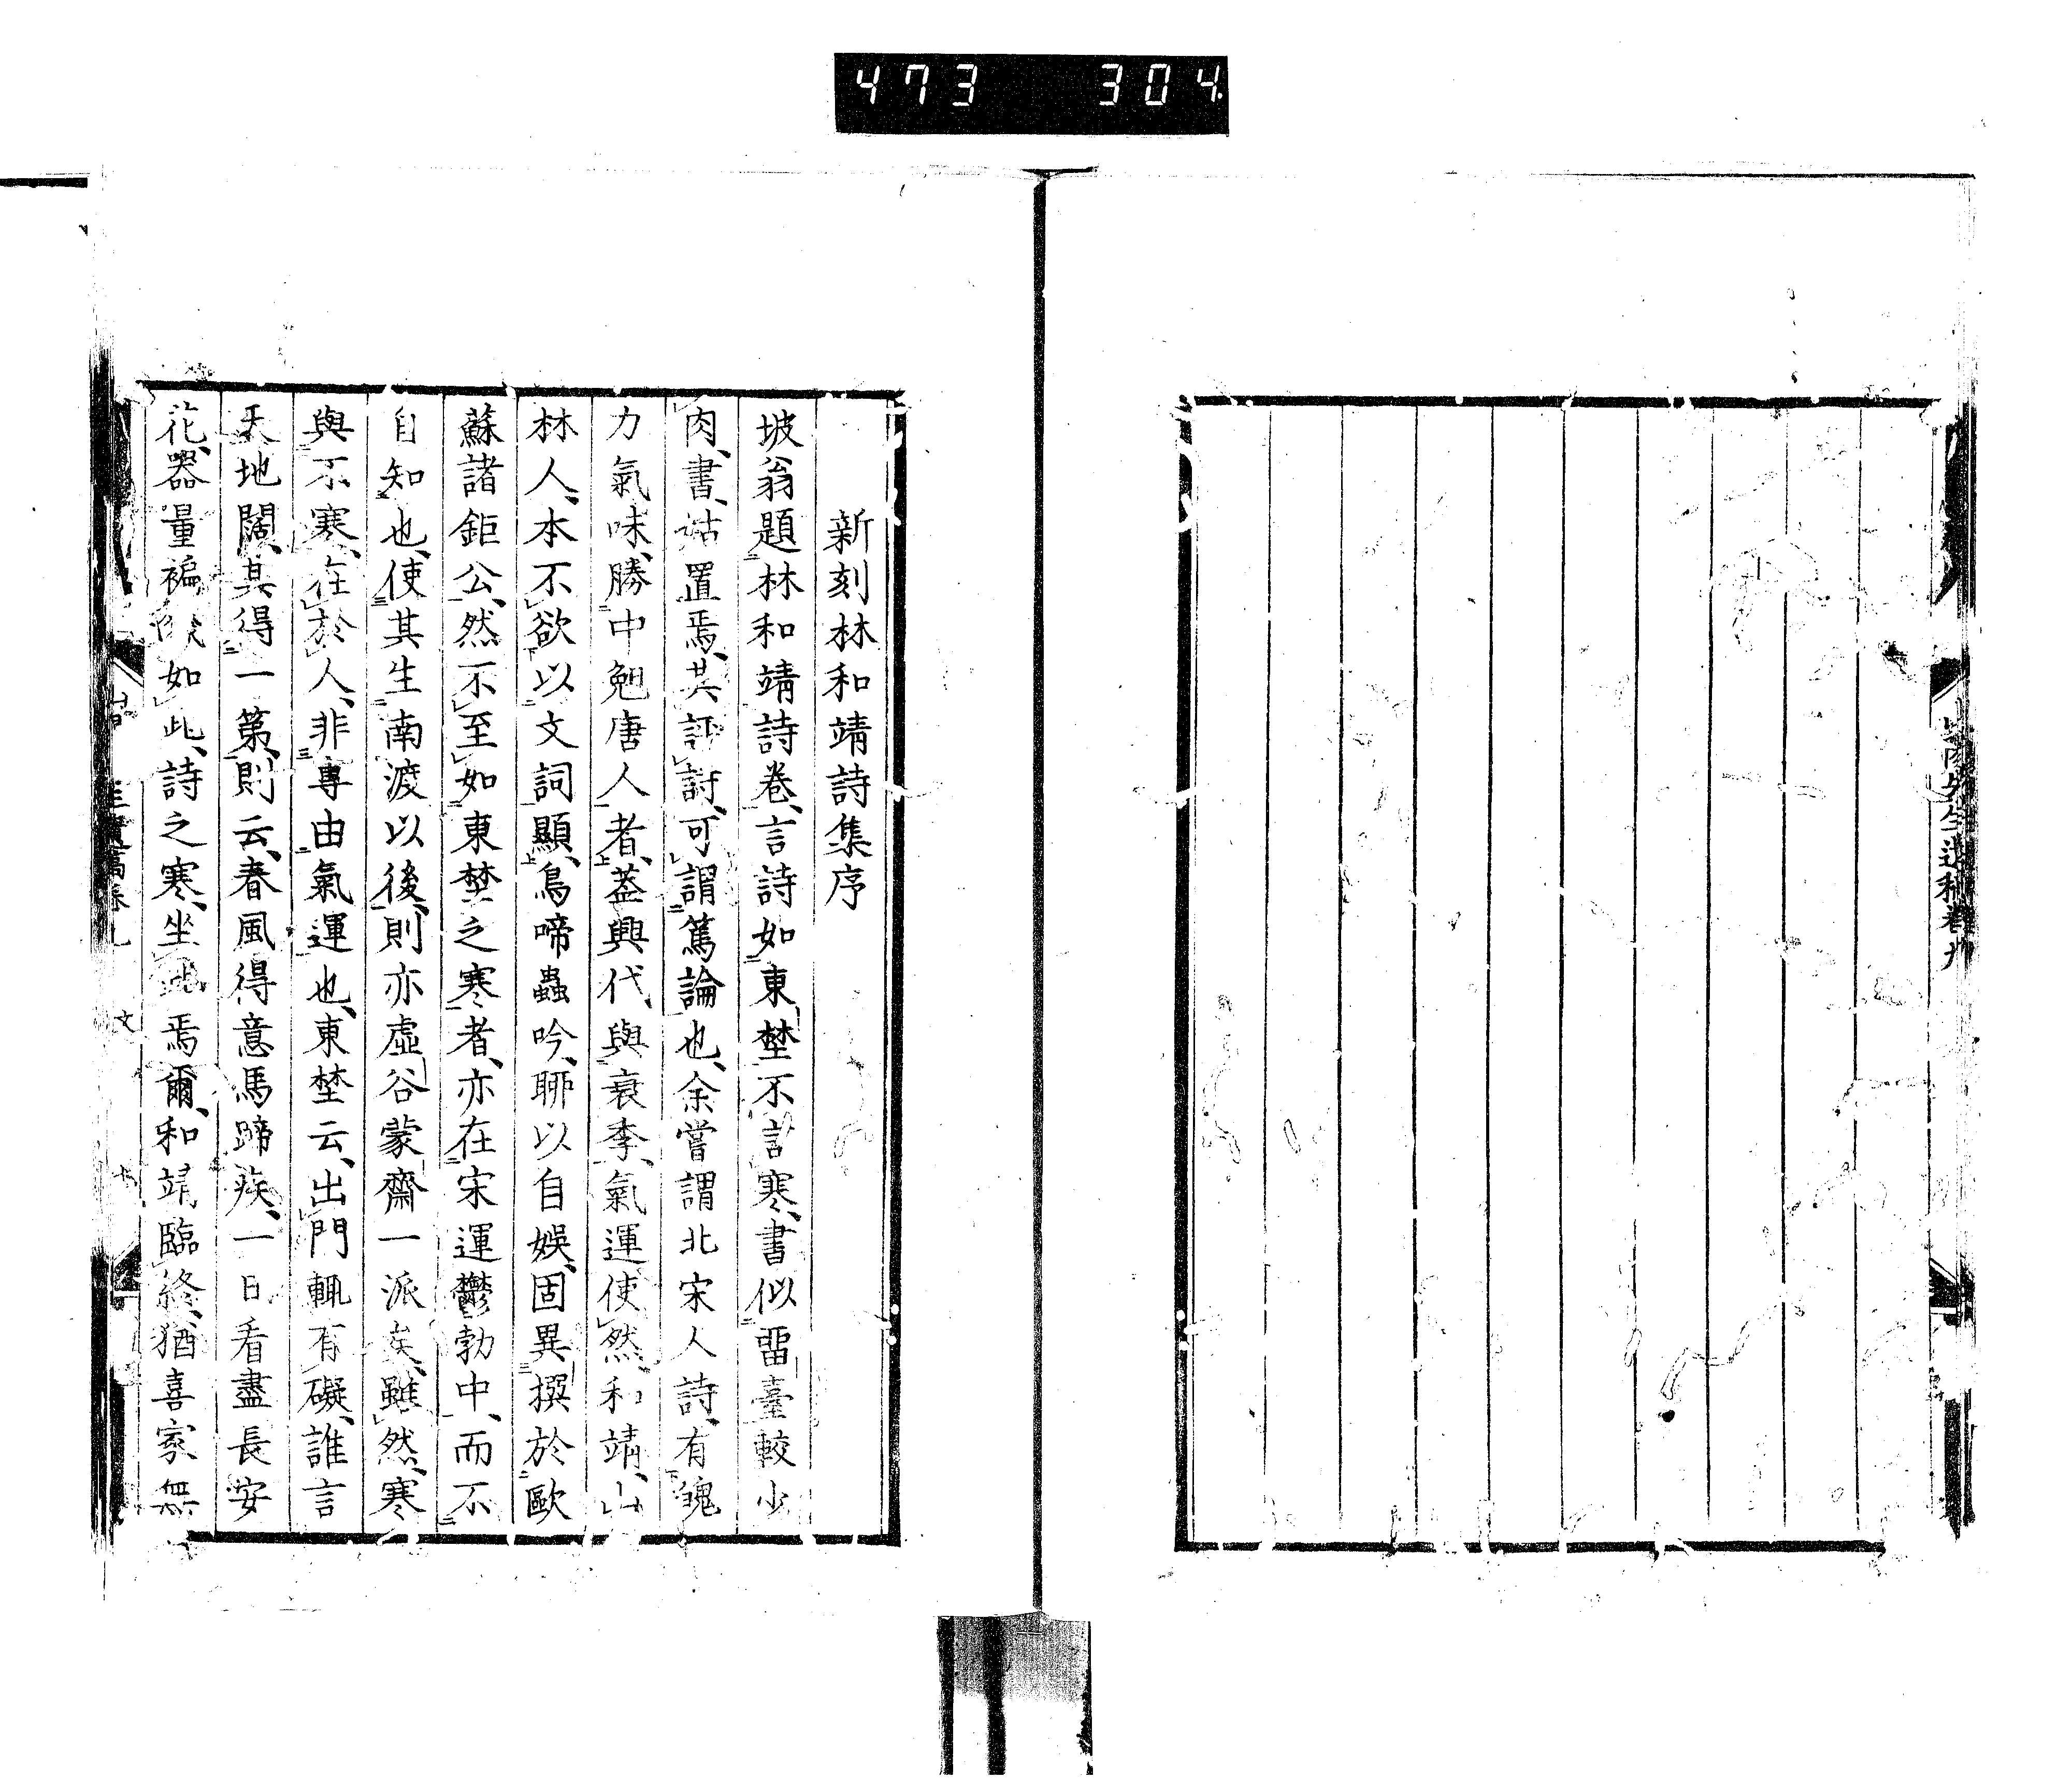 473 304
山陽先生遺稿卷九
新刻林和靖詩集序
坡翁題林和靖詩卷、言詩如東埜不言寒、書似畱臺較少
肉、書姑置焉、其評詩、可謂篤論也、余嘗謂北宋人詩、有魄
力氣味、勝中勉唐人者、蓋興代與衰季、氣運使然、和靖、山
林人、本不欲以文詞顯、鳥啼蟲吟、聊以自娛、固異撰於歐
蘇諸鉅公、然不至如東埜之寒者、亦在宋運鬱勃中、而不
自知也、使其生南渡以後、則亦虛谷蒙齋一派矣、雖然、寒
與不寒、在於人、非專由氣運也、東埜云、出門輒有礙、誰言
天地闊、其得一第、則云、春風得意馬蹄疾、一日看盡長安
花、器量褊陜如此、詩之寒、坐此焉爾、和靖臨終、猶喜家無
文